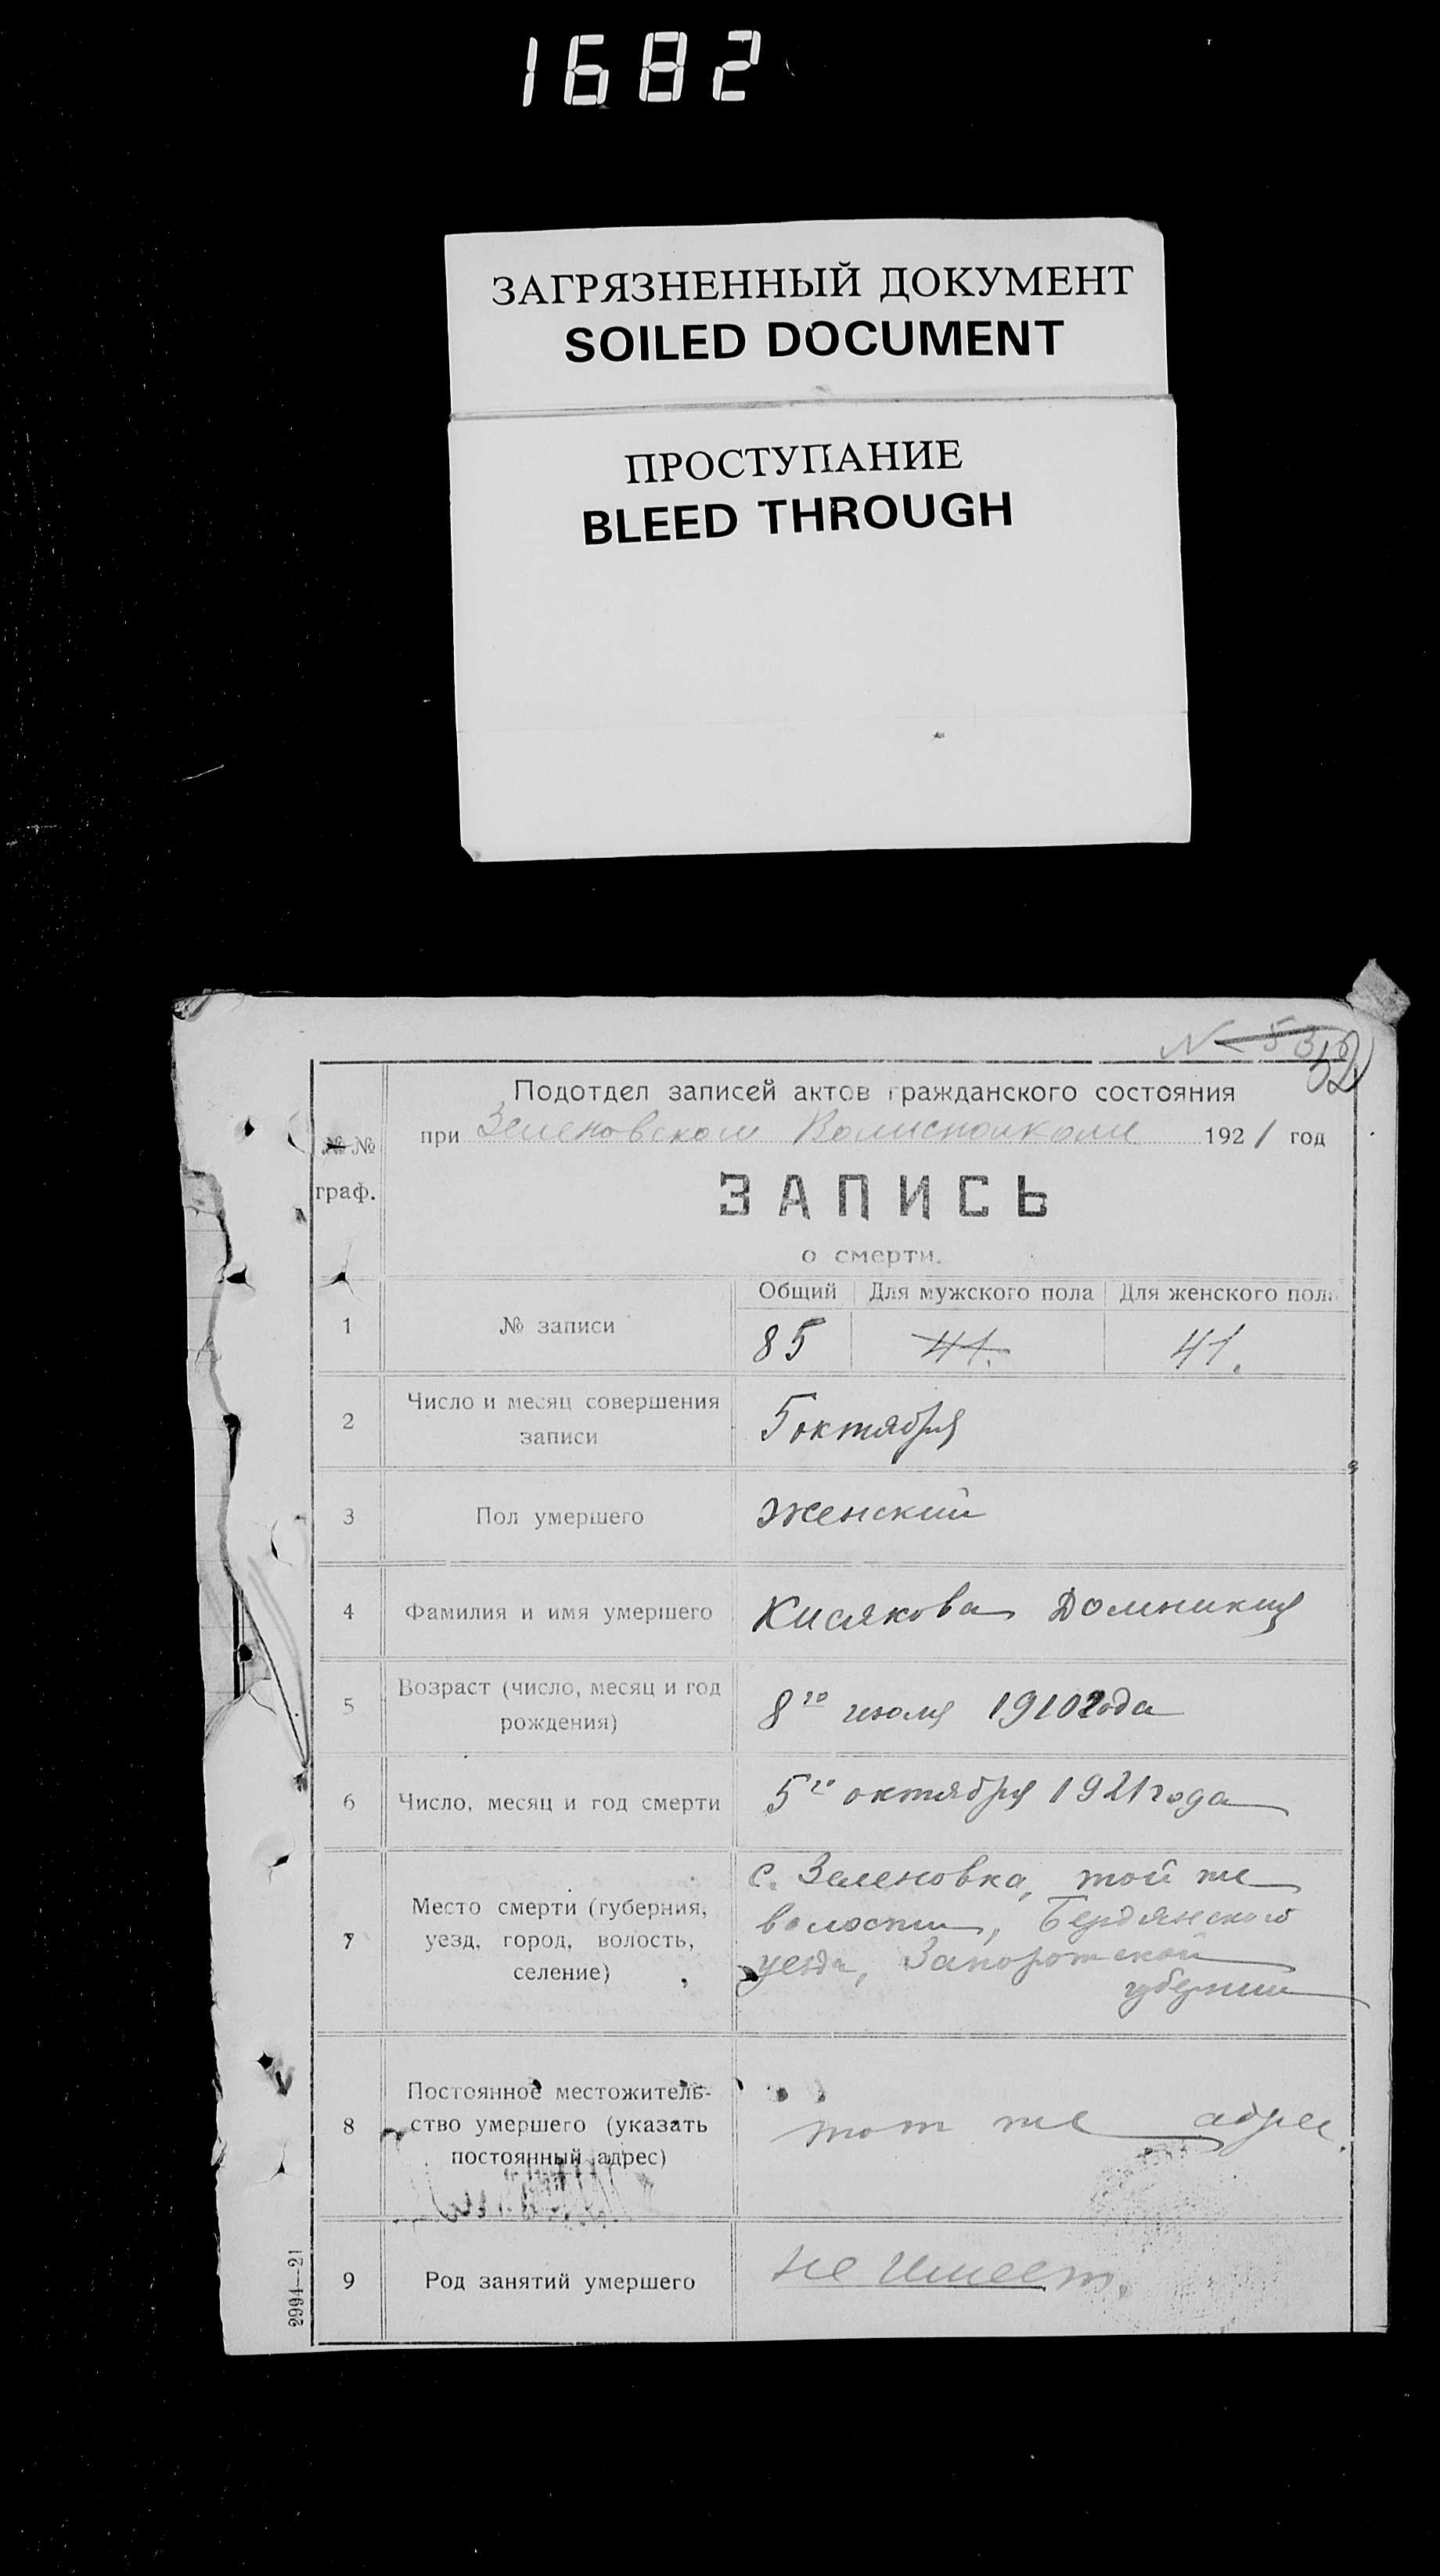 1682
ЗАГРЯЗНЕННЫЙ ДОКУМЕНТ
SOILED DOCUMENT
ПРОСТУПАНИЕ
BLEED THROUGH
Подотдел записей актов гражданского состояния
при Зеленовском Волисполкоме 1921 год
№№
граф.
ЗАПИСЬ
о смерти.
Общий Для мужского пола Для женского пола
1 № записи 85 41. 41.
2 Число и месяц совершения
записи
5 октября
3 Пол умершего Женский
4 Фамилия и имя умершего Кислкова Домникия
5 Возраст (число, месяц и год
рождения)
8го июля 1910 года
6 Число, месяц и год смерти 5го октября 1921 года
7 Место смерти (губерния,
уезд, город, волость,
селение)
с. Зеленовка, той же
волости, Бердянского
уезда, Запорожской
губернии
8 Постоянное местожитель-
ство умершего (указать
постоянный адрес)
тот же адрес.
9 Род занятий умершего не имеет.
2994—21